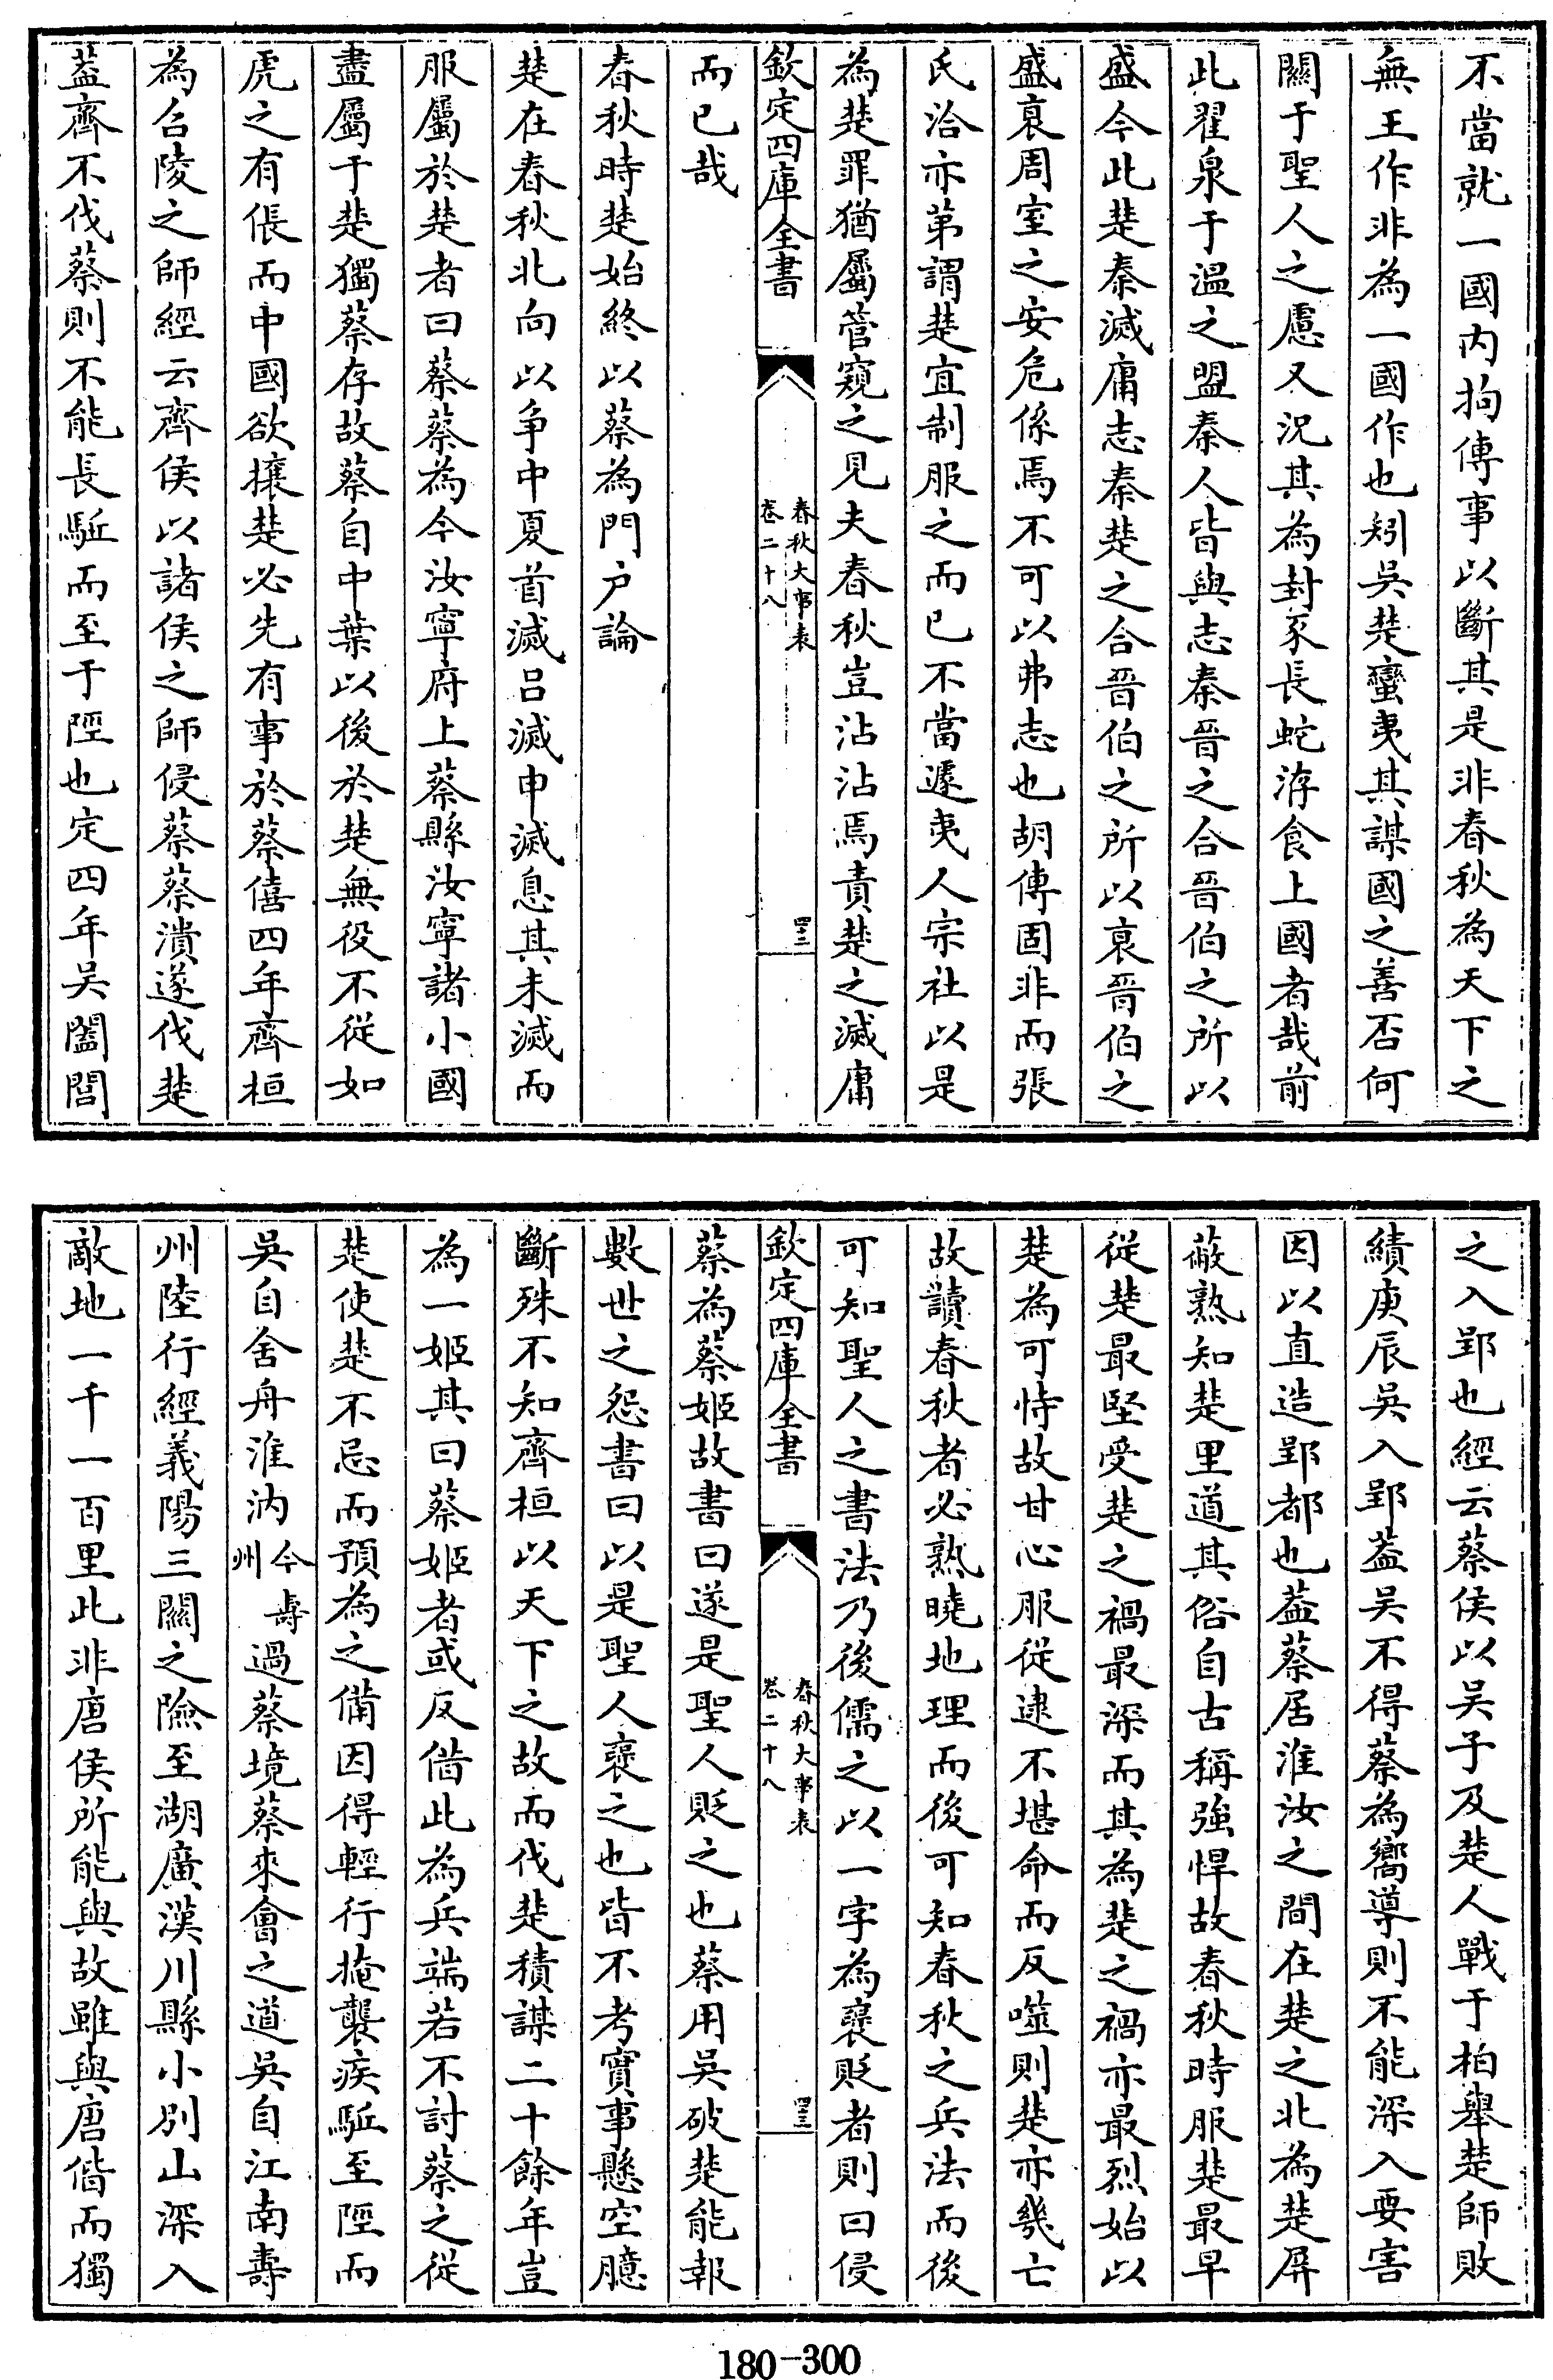 不當就一國内拘傳事以斷其是非春秋為天下之
無王作非為一國作也矧吳楚蠻夷其謀國之善否何
關于聖人之慮又況其為封豕長蛇洊食上國者哉前
此翟泉于溫之盟秦人皆與志秦晉之合晉伯之所以
盛今此楚秦滅庸志秦楚之合晉伯之所以衰晉伯之
盛衰周室之安危係焉不可以弗志也胡傳固非而張
氏洽亦第謂楚宜制服之而已不當遽夷人宗社以是
為楚罪猶屬管窺之見夫春秋豈沾沾焉責楚之滅庸
欽定四庫全書
春秋大事表
卷二十八
四十二
而已哉
春秋時楚始終以蔡為門户論
楚在春秋北向以争中夏首滅吕滅申滅息其未滅而
服屬於楚者曰蔡蔡為今汝寧府上蔡縣汝寧諸小國
盡屬于楚獨蔡存故蔡自中葉以後於楚無役不從如
虎之有倀而中國欲攘楚必先有事於蔡僖四年齊桓
為召陵之師經云齊侯以諸侯之師侵蔡蔡潰遂伐楚
葢齊不伐蔡則不能長驅而至于陘也定四年吳闔閭
之入郢也經云蔡侯以吴子及楚人戰于柏舉楚師敗
績庚辰吳入郢葢吴不得蔡為嚮導則不能深入要害
因以直造郢都也葢蔡居淮汝之間在楚之北為楚屏
蔽熟知楚里道其俗自古稱強悍故春秋時服楚最早
從楚最堅受楚之禍最深而其為楚之禍亦最烈始以
楚為可恃故甘心服從逮不堪命而反噬則楚亦幾亡
故讀春秋者必熟曉地理而後可知春秋之兵法而後
可知聖人之書法乃後儒之以一字為褒貶者則曰侵
欽定四庫全書
春秋大事表
卷二十八
四十三
蔡為蔡姬故書曰遂是聖人貶之也蔡用吴破楚能報
數世之怨書曰以是聖人褒之也皆不考實事懸空臆
斷殊不知齊桓以天下之故而伐楚積謀二十餘年豈
為一姬其曰蔡姬者或反借此為兵端若不討蔡之從
楚使楚不忌而預為之備因得輕行掩襲疾驅至陘而
吳自舍舟淮汭今壽州過蔡境蔡來會之道吴自江南壽
州陸行經義陽三關之險至湖廣漢川縣小别山深入
敵地一千一百里此非唐侯所能與故雖與唐偕而獨
180-300